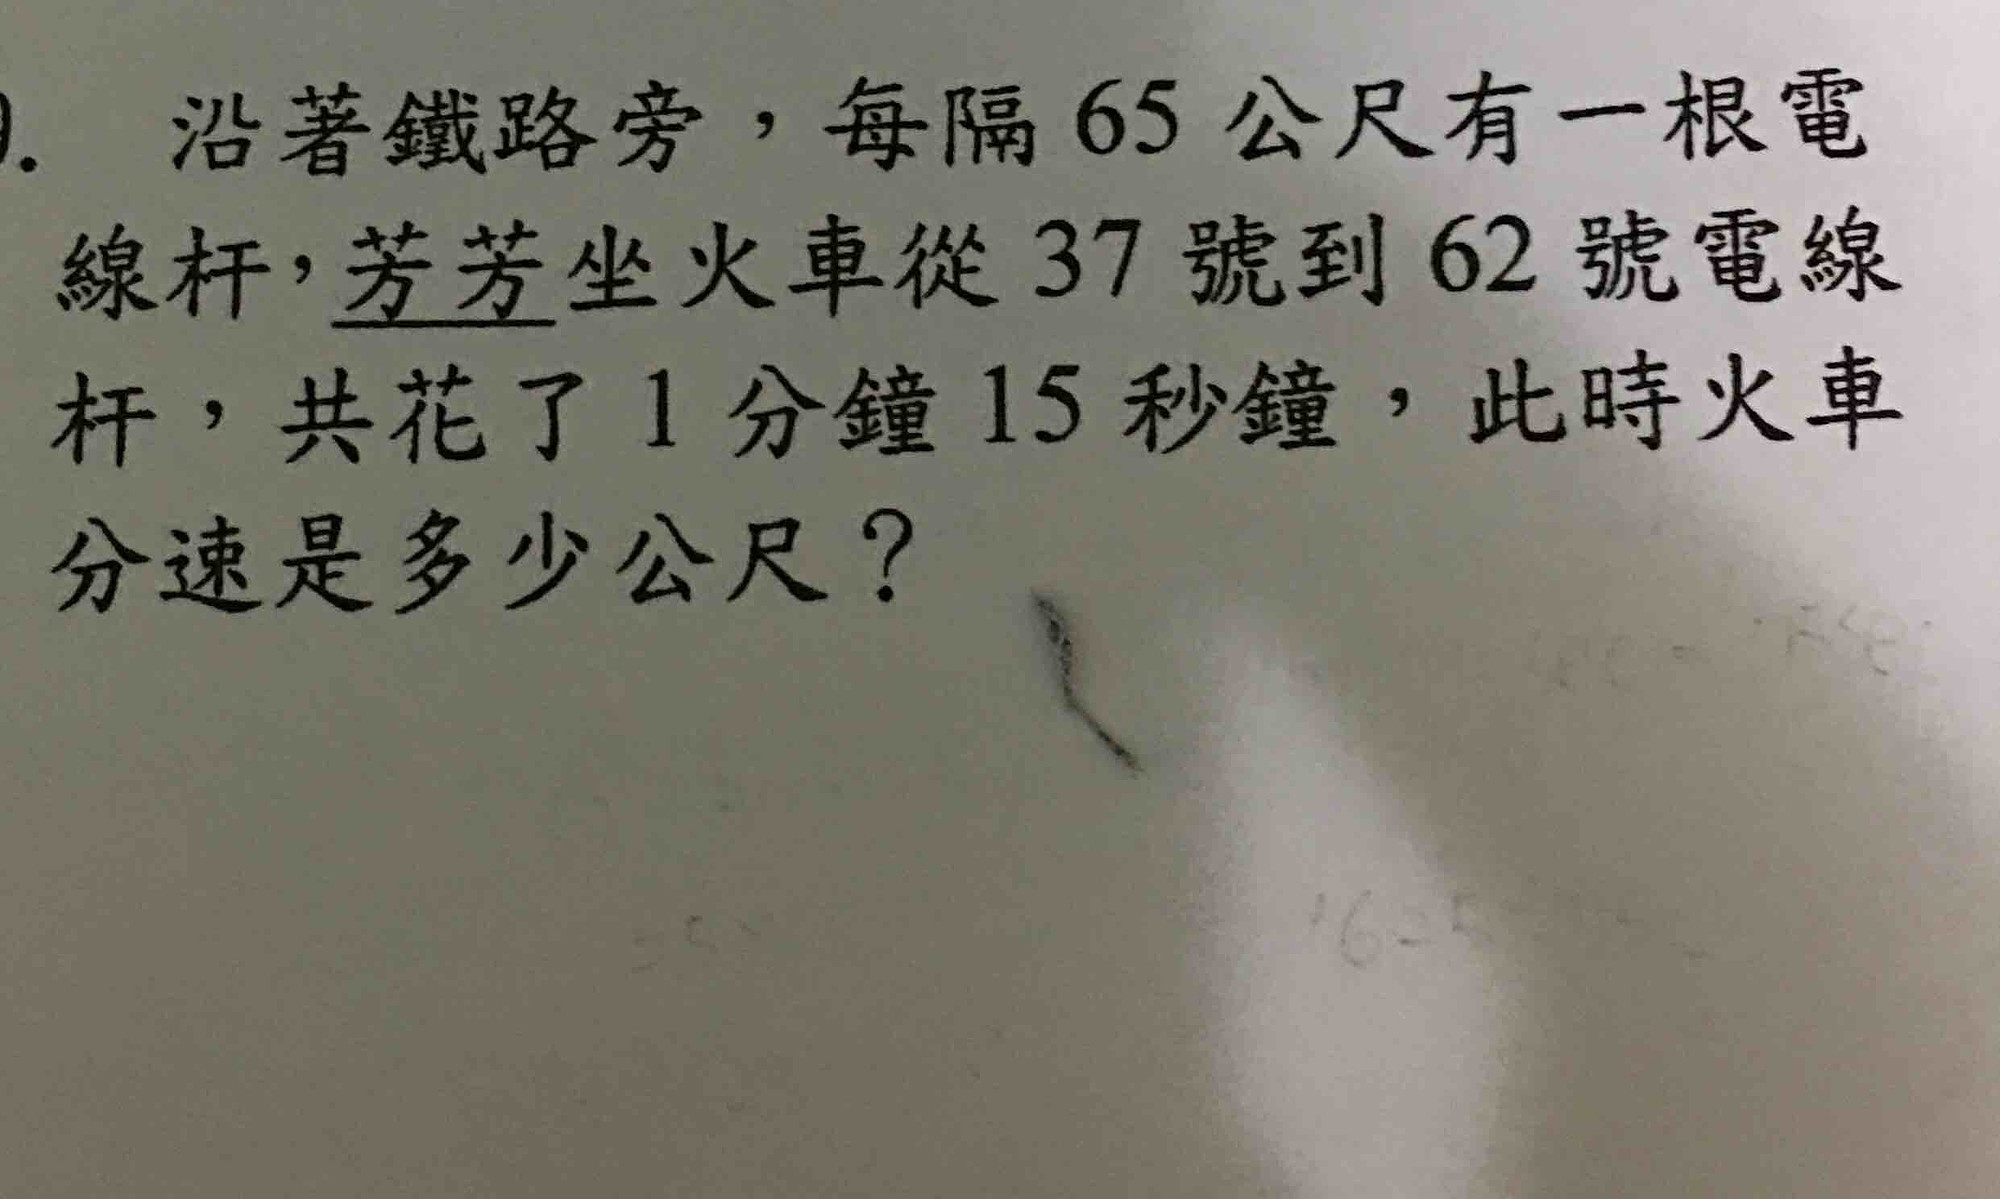 . 沿著鐵路旁，每隔 65 公尺有一根電
線杆，芳芳坐火車從 37 號到 62 號電線
杆，共花了 1 分鐘 15 秒鐘，此時火車
分速是多少公尺？